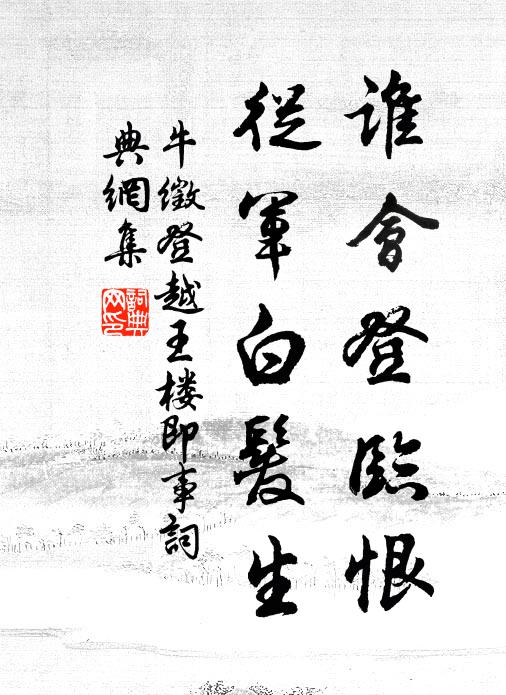 誰會登臨恨
從軍白髮生
牛徵登越王楼即事詞
典網集
詞典網印